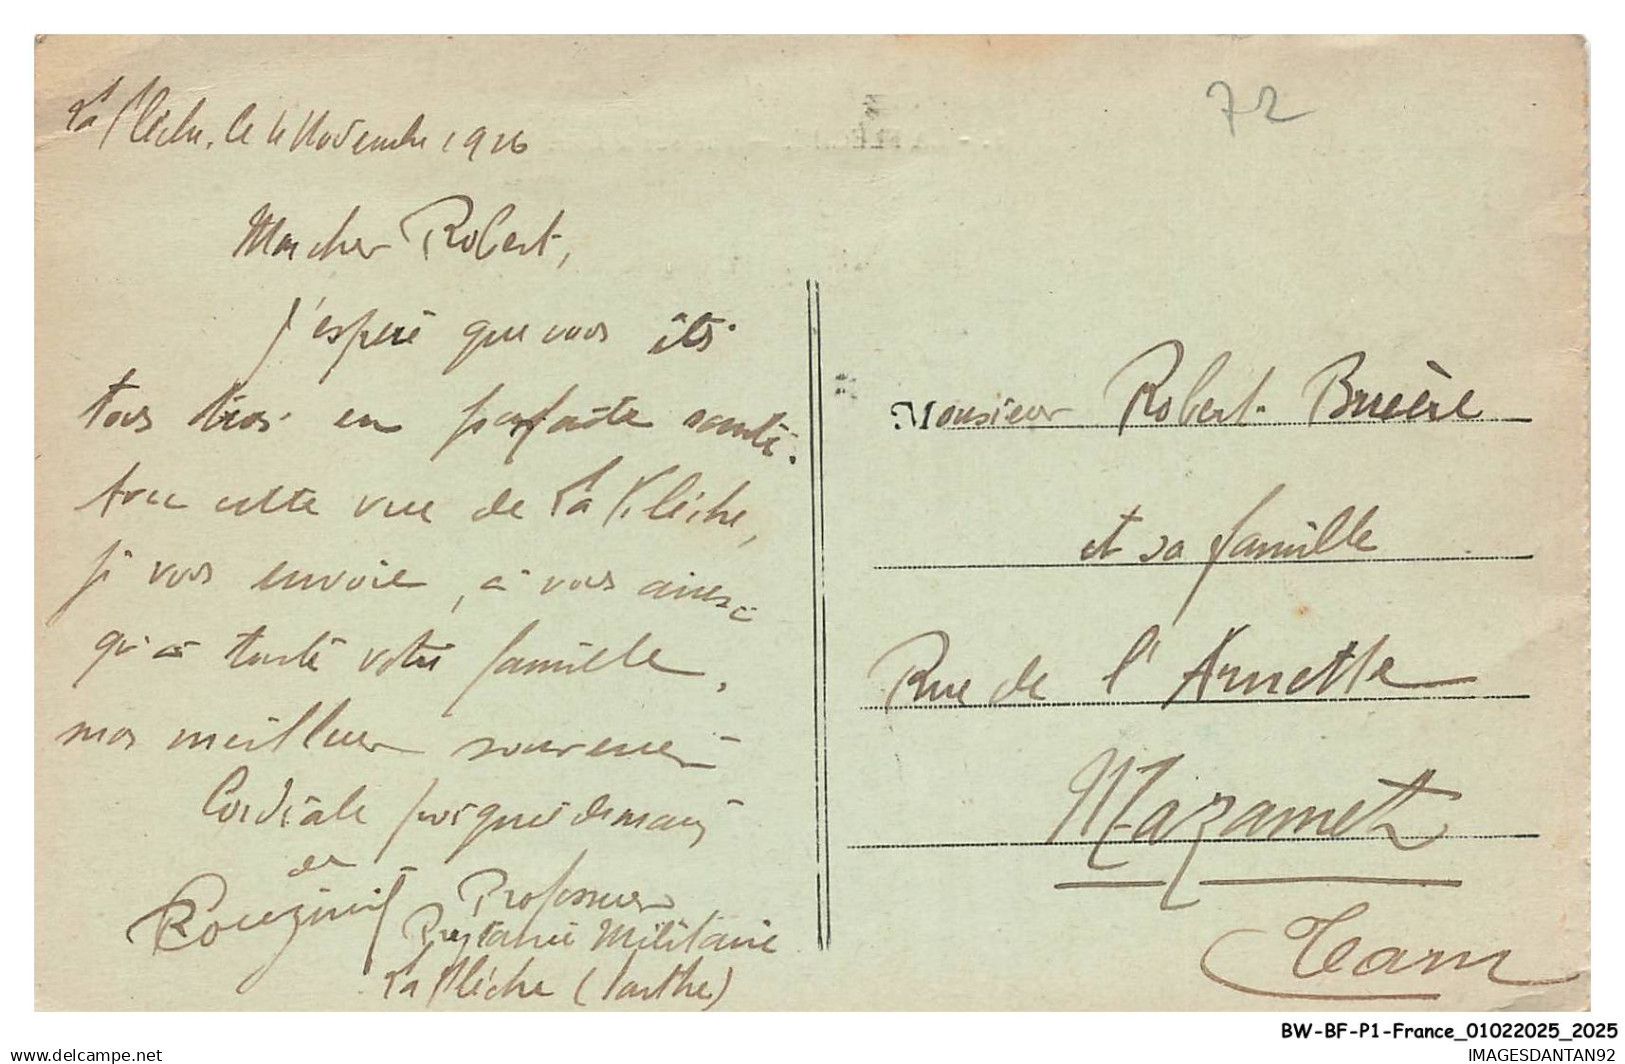 La Flèche, le 4 Novembre 1926
72
Mon cher Robert,
J'espère que vous êtes
tous deux en parfaite santé.
Avec cette vue de La Flèche,
je vous envoie, à vous ainsi
qu'à toute votre famille,
mon meilleur souvenir
Cordiale poignée de main
de
Professeur
Prytanée Militaire
La Flèche (Sarthe)
Monsieur Robert Bruère
et sa famille
Rue de l'Arnette
Mazamet
Tarn
BW-BF-P1-France_01022025_2025
www.delcampe.net
IMAGESDANTAN92